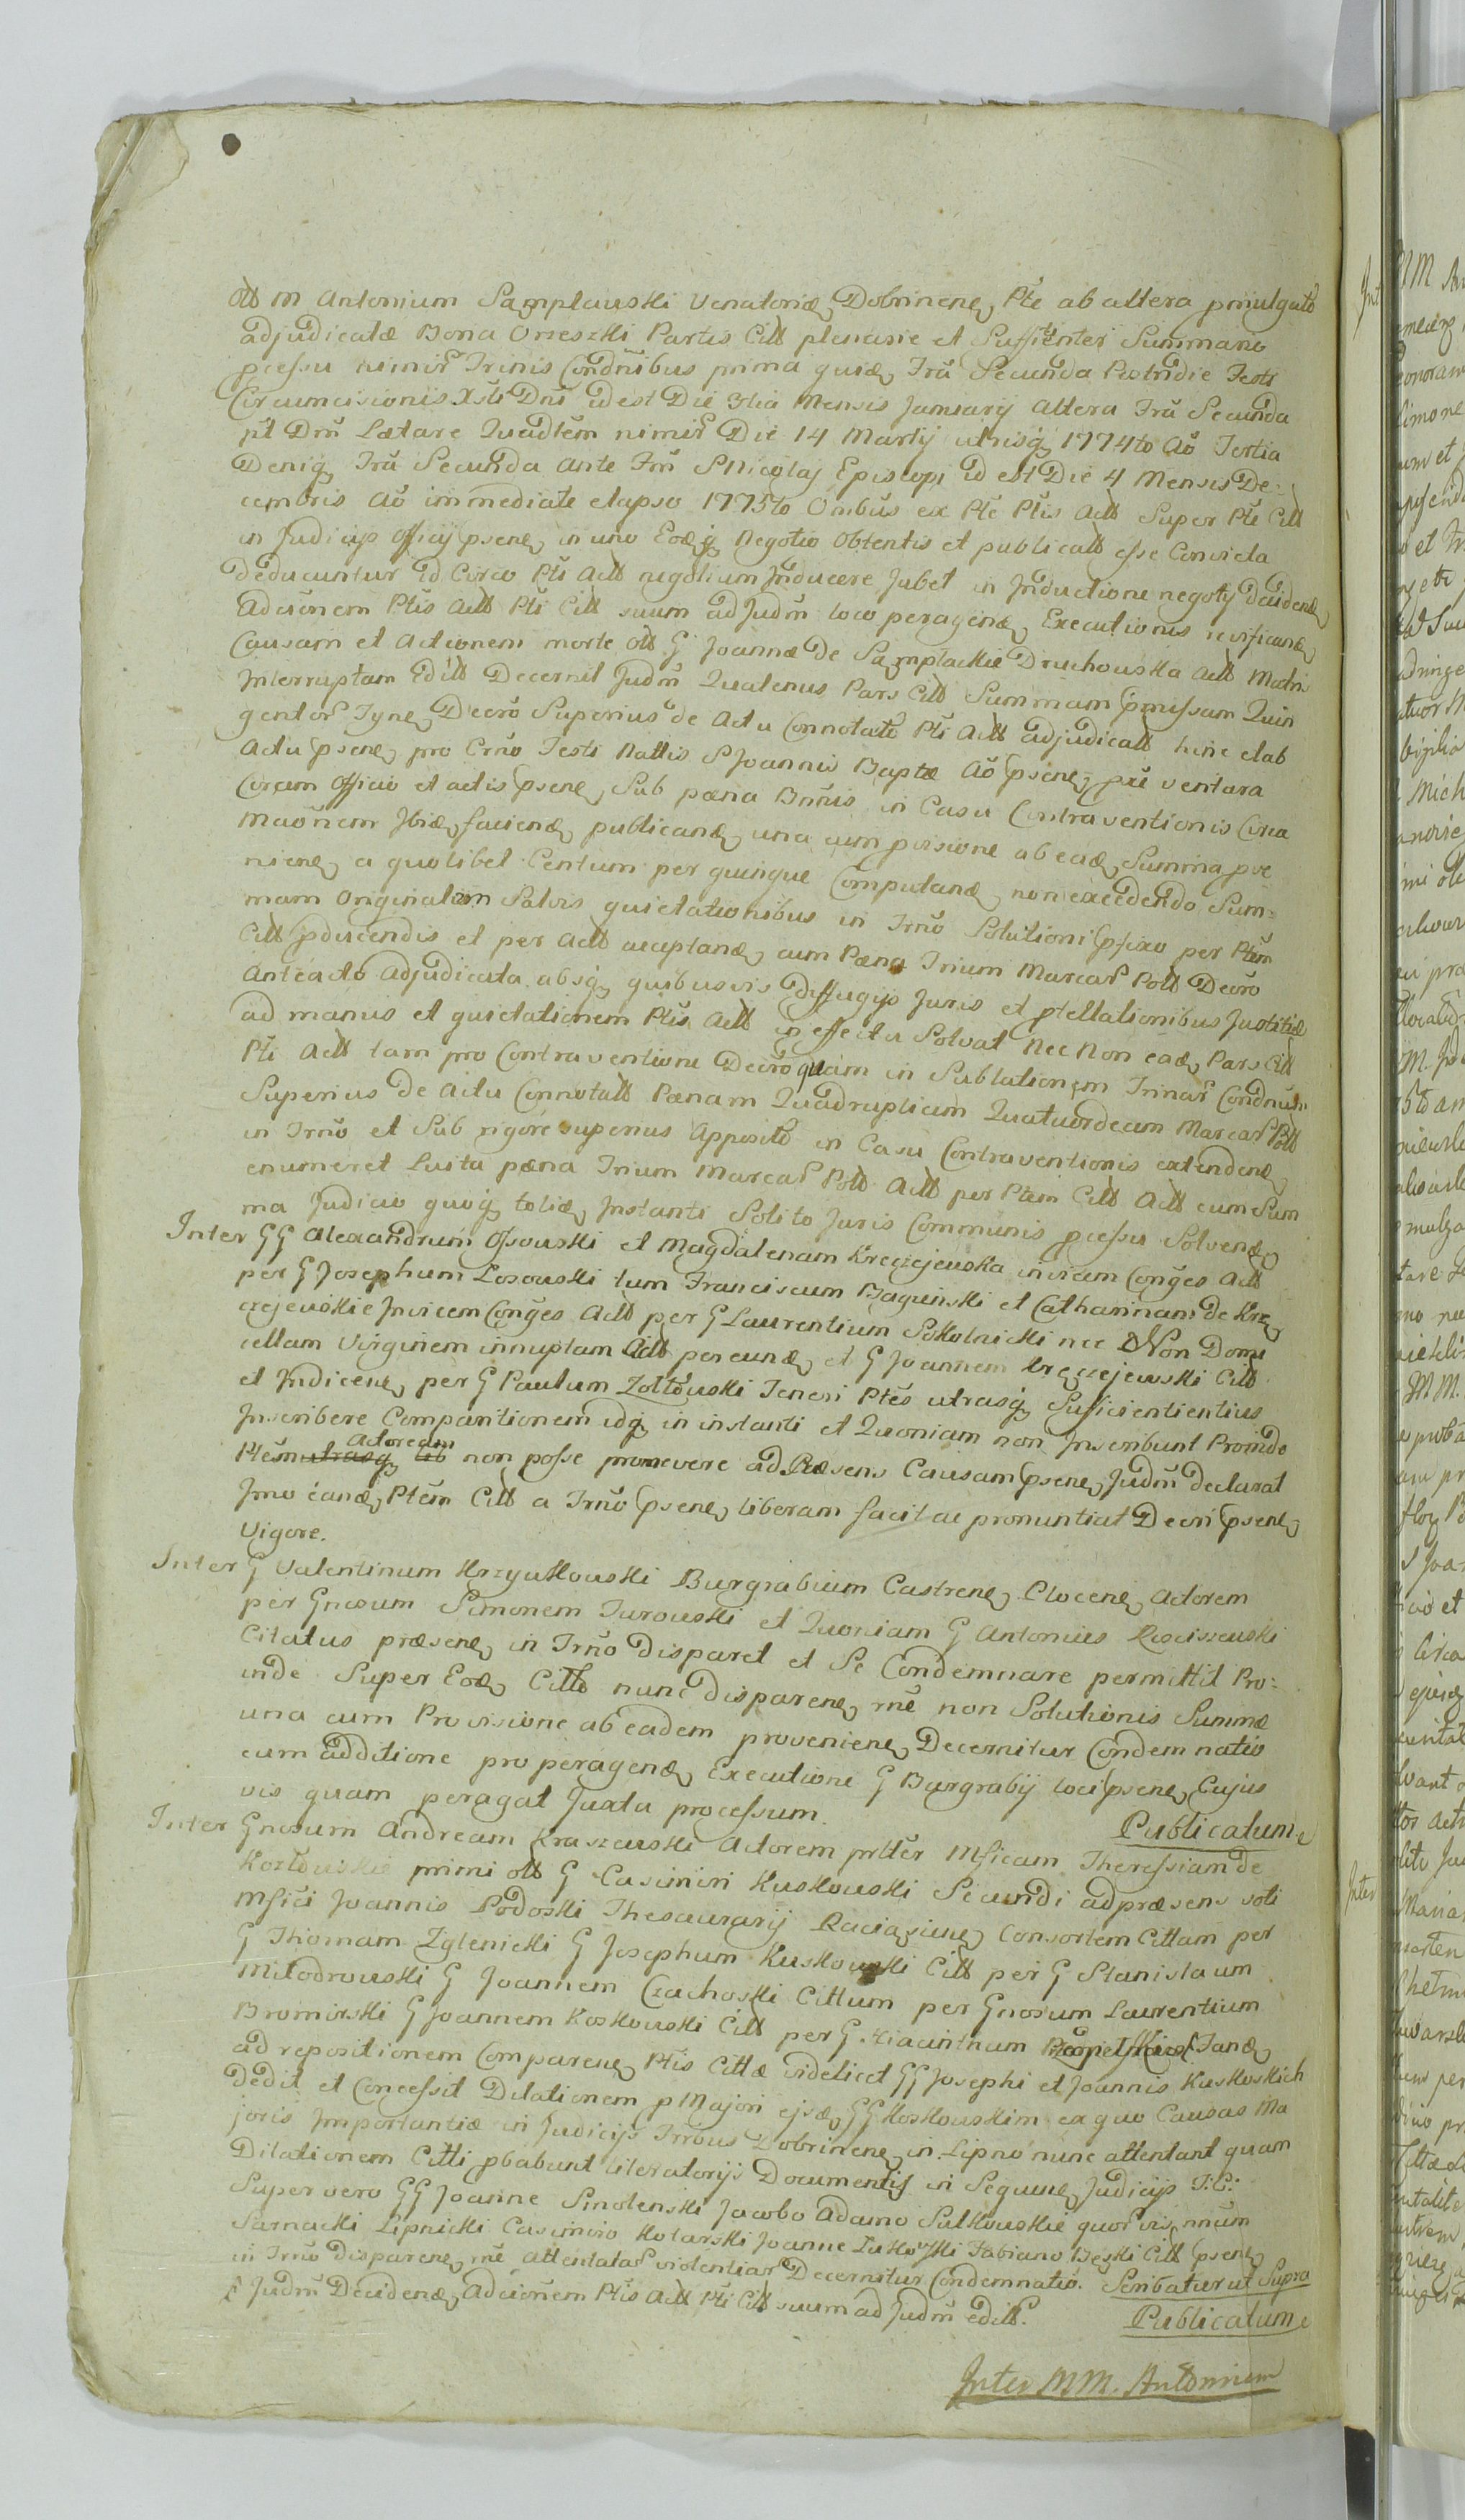 olt M Antonium Sąmpławski Venatoriæ Dobrinenę Pte ab altera pmulgato
adjudicatæ Bona Orzeszki Partis Citt plenarie et Sufficienter Summario
pcessu nimir Trinis Condnnibus prima quidę Fria Secunda Postridie Festi
Circumcisionis Xsti Dni id est Die 3tia Mensis January Altera Fria Secunda
pt Dnm Lætare Quadlem nimir Die 14 Martij utrisq 1774to Ao Tertia
Deniq Fria Secunda Ante Fm S Nicolaj Episcopi id est Die 4 Mensis De-
cembris Ao immediate elapso 1775to Omibus ex Pte Ptis Actt Super Pte Citt
in Judicijs Officij psenę in uno Eodę Negotio Obtentis et publicatt esse Convicta
Deducuntur id Circo Pti Actt negotium Inducere Jubet in Inductione negotij decidendę
Adcionem Ptis Actt Pti Citt suum ad Judm loco peragendę Executionis revificandę
Causam et Actionem morte olt G Joannæ de Sąmpłackie Druchouska Actt Matris
Interruptam Editt Decernit Judm Quatenus Pars Citt Summam pmissam Quin
gentor Tynę Decro Superius de Actu Connotato Pti Actt adjudicatt hinc et ab
Actu psenę pro Crno Festi Nattis S Joannis Baptæ Ao psenę pxe ventura
Coram Officio et actis psenę Sub pæna Bnnis in Casu Contraventionis Circa
maonem Ibidę faciendę publicandę una cum pvisione ab eadę Summa pve
nienę a quolibet Centum per quinque Computandę non excedendo Sum-
mam Originalem Salvis quietationibus in Trno Solutioni pfixo per Ptem
Citt pducendis et per Actt acceptandę cum Pæna Trium Marcar Polt Decro
Anteacto Adjudicata absq quibusvis diffugijs Juris et ptellationibus Justitiæ
ad manus et quietationem Ptis Actt in effectu Solvat Nec Non eadę Pars Citt
Pti Actt tam pro Contraventione Decro quam in Sublationem Trinar Condnum
Superius de Actu Connotatt Pænam Quadruplicem Quatuordecem Marcar Polt
in Trno et Sub rigore superius Apposito in Casu Contraventionis extendendę
enumeret Luita pæna Trium Marcar Polt Actt per Ptem Citt Actt cum Sum
ma Judicio quoq totidę Instanti Solito Juris Communis pcessu Solvendę
Inter GG Alexandrum Ossouski et Magdalenam Kręczejeuska invicem Conges Actt
per G Josephum Losouski tum Franciscum Baguński et Catharinam de Krę
czejeuskie Invicem Conges Actt per G Laurentium Sokolnicki nec Non Domi
cellam Virginem innuptam Actt per eundę et G Joannem Kręczejewski Citt
et Indicenę per G Paulum Zołtouski Teneri Ptes utrasq Suficientientius
Inscribere Comparitionem idq in instanti et Quoniam non Inscribunt Proinde
Ptem utrasq Actoream non posse promovere ad Præsens Causam psenę Judm declarat
Imo eandę Ptem Citt a Trno psenę liberam facit ac pronuntiat Decri psenę
Vigore.
Inter G Valentinum Krzyukouski Burgrabium Castrenę Plocenę Actorem
per Gnosum Simonem Turouski et Quoniam G Antonius Rosciszeuski
Citatus præsenę in Trno disparet et Se Condemnare permittit Pro-
inde Super Eodę Citto nunc disparenę rne non Solutionis Summæ
una cum Provisione ab eadem provenienę Decernitur Condemnatio
cum additione pro peragendę Executione G Burgrabij loci psenę Cujus
vis quam peragat Juxta processum. Publicatum
Inter Gnosum Andream Kraszeuski Actorem prtter Msicam Theressiam de
Kozłouskie primi olt G Casimiri Kuskouski Secundi ad præsens voti
Msici Joannis Podoski Thesaurarij Raciąsienę Consortem Cittam per
G Thomam Zglenicki G Josephum Kuskouski Citt per G Stanislaum
Miłodrouski G Joannem Czachoski Cittum per Gnosum Laurentium
Bromirski G Joannem Koskouski Citt per G Hiacinthum Tandę
ad repositionem Comparenę Ptis Cittæ videlicet GG Josephi et Joannis Kuskoskich
Dedit et Concessit Dilationem p Majori ejsdę GG Koskouskim ex quo Causas Ma
joris Importantiæ in Judicijs Trrbus Dobrinenę in Lipno nunc attentant quam
Dilationem Citti pbabunt literatorijs Documentis in Sequenę Judicijs T:C:
Super vero GG Joanne Smolenski Jacobo Adamo Sulkouskie quor vis nnum
Sarnacki Lipnicki Casimiro Kotarski Joanne Łukowski Fabiano Bęski Citt psenę
in Trno disparenę rne attentatar violentiar Decernitur Condemnatio. Scribatur ut Supra
S Judm Decidendę Adcionem Ptis Actt Pti Citt suum ad Judm editt. Publicatum
Inter MM. Antonium